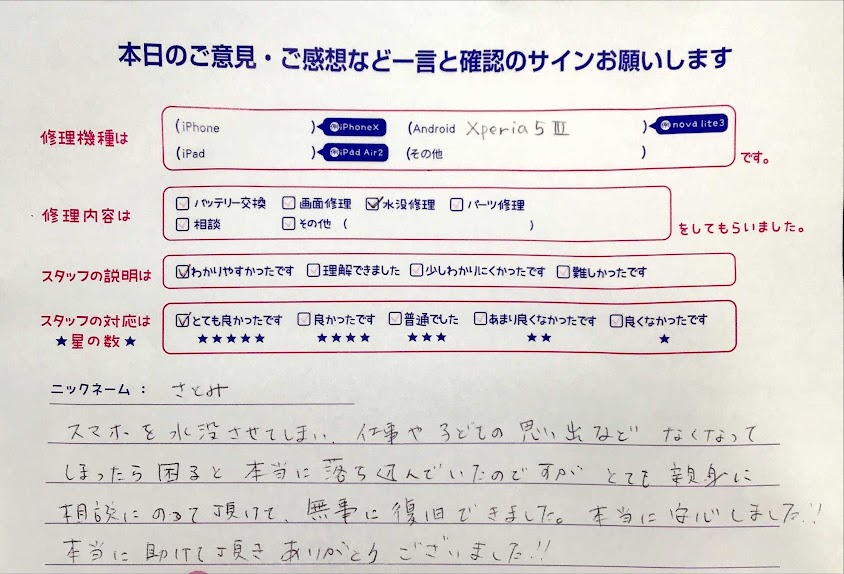 本日のご意見・ご感想など一言と確認のサインお願いします
修理機種は
(iPhone )iPhoneX (Android Xperia 5 III )nova lite3
(iPad )iPad Air2 (その他 )
です。
修理内容は
バッテリー交換 画面修理 水没修理 パーツ修理
相談 その他 ( )
をしてもらいました。
スタッフの説明は わかりやすかったです 理解できました 少しわかりにくかったです 難しかったです
スタッフの対応は とても良かったです 良かったです 普通でした あまり良くなかったです 良くなかったです
★星の数★ ★★★★★ ★★★★ ★★★ ★★ ★
ニックネーム: さとみ
スマホを水没させてしまい、仕事や子どもの思い出など なくなって
しまったら困ると本当に落ち込んでいたのですが とても親身に
相談にのって頂けて、無事に復旧できました。本当に安心しました!!
本当に助けて頂き ありがとうございました!!